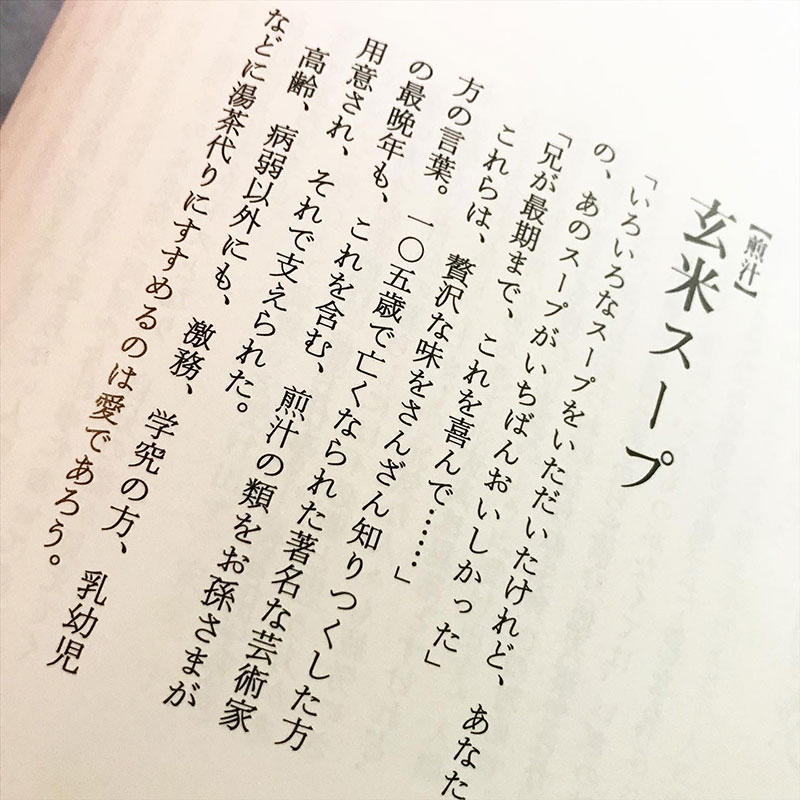 【煎汁】
玄米スープ
「いろいろなスープをいただいたけれど、あなた
の、あのスープがいちばんおいしかった」
「兄が最期まで、これを喜んで……」
これらは、贅沢な味をさんざん知りつくした方
方の言葉。一〇五歳で亡くなられた著名な芸術家
の最晩年も、これを含む、煎汁の類をお孫さまが
用意され、それで支えられた。
高齢、病弱以外にも、激務、学究の方、乳幼児
などに湯茶代りにすすめるのは愛であろう。